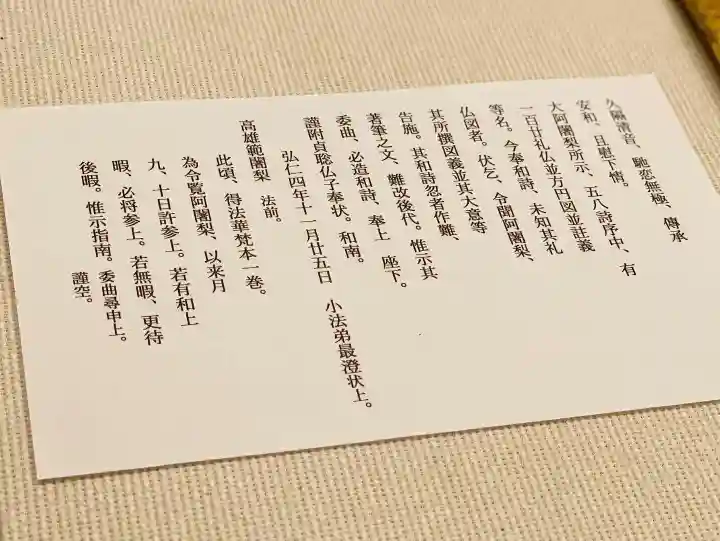 久隔清音、馳恋無極、傳承
安和、且慰下情。　有
大阿闍梨所示、五八詩序中、
一百廿礼仏並方円図並註義
等名。今奉和詩、未知其礼
仏図者。伏乞、令聞阿闍梨、
其所撰図義並其大意等
告施。其和詩忽者作難、
著筆之文、難改後代。惟示其
委曲、必造和詩、奉上　座下。
謹附貞聡仏子奉状。和南。
弘仁四年十一月廿五日　小法弟最澄状上。
高雄範闍梨　法前。
此頃、得法華梵本一巻。
為令覧阿闍梨、以来月
九、十日許参上。若有和上
暇、必将参上。若無暇、更待
後暇。惟示指南。委曲尋申上。
謹空。